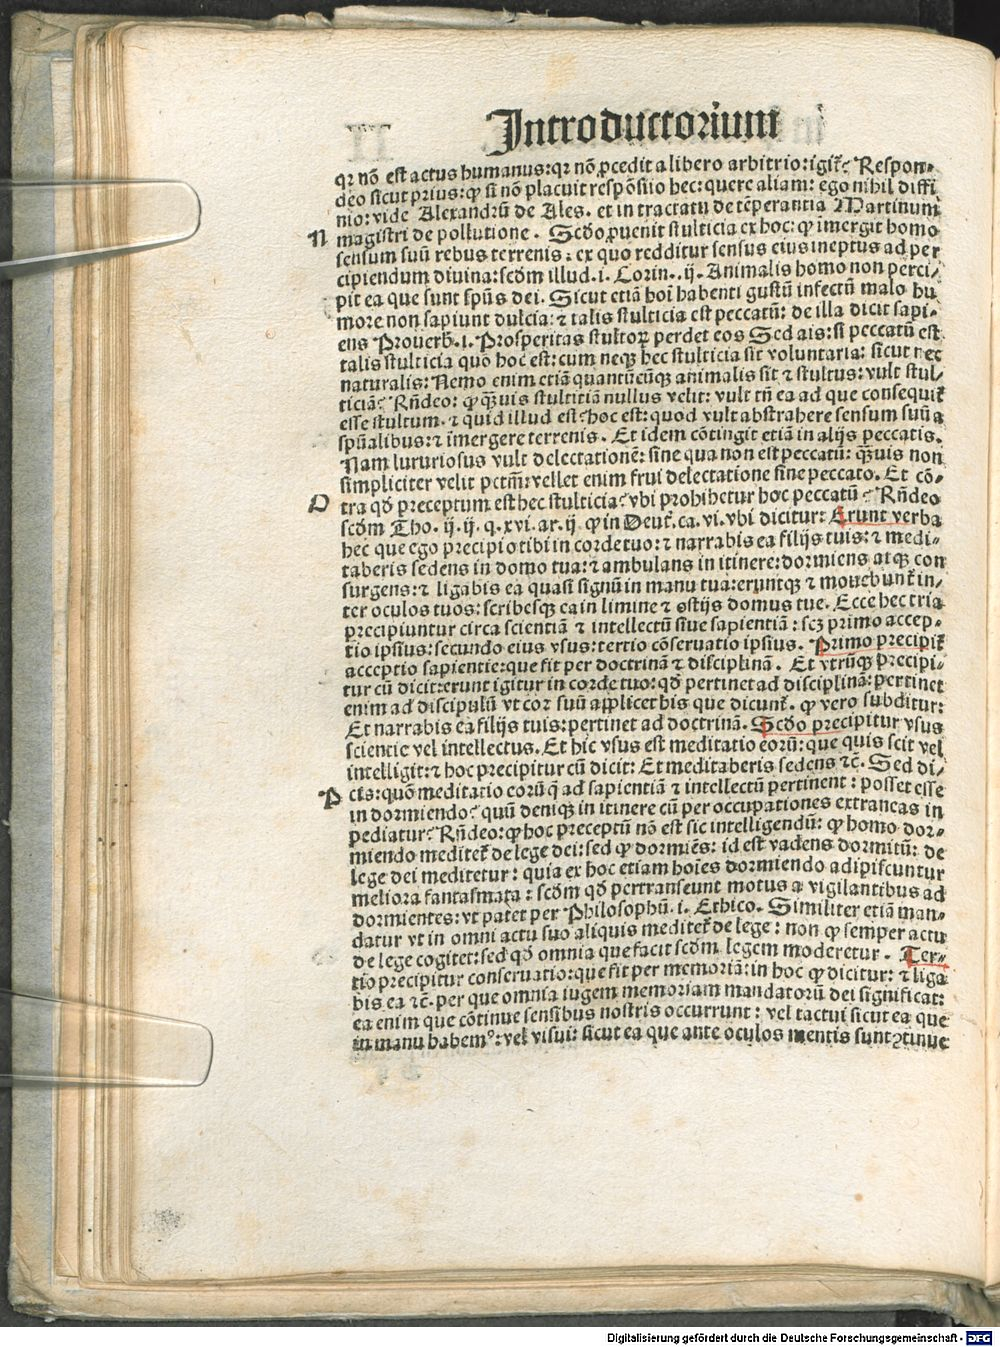 Introductorium
qꝛ nō est actus humanus: qꝛ nō ꝓcedit a libero arbitrio: igit̄ꝛc̄ Respon⸗
deo sicut prius: ꝙ si nō placuit respōsio hec: quere aliam: ego nihil diffi
nio: vide Alexandrū de Ales. et in tractatu de tēperantia Martinum
N magistri de pollutione. Scd̄o ꝓuenit stulticia ex hoc: ꝙ īmergit homo
sensum suū rebus terrenis: ex quo redditur sensus eius ineptus ad per
cipiendum diuina: scd̄m illud .i. Corin. .ij. Animalis homo non perci⸗
pit ea que sunt spūs dei. Sicut etiā hoī habenti gustū infectū malo hu
more non sapiunt dulcia: ⁊ talis stulticia est peccatū: de illa dicit sapi⸗
ens Prouerb. i. Prosperitas stultoꝝ perdet eos Sed ais: si peccatū est
talis stulticia quō hoc est: cum neqꝫ hec stulticia sit voluntaria: sicut nec
naturalis: Nemo enim etiā quantūcūqꝫ animalis sit ⁊ stultus: vult stul⸗
ticiā: Rn̄deo: ꝙ quīs stultitiā nullus velit: vult tn̄ ea ad que consequit̄
esse stultum. ⁊ quid illud est: hoc est: quod vult abstrahere sensum suū a
spūalibus: ⁊ īmergere terrenis. Et idem cōtingit etiā in alijs peccatis.
Nam luxuriosus vult delectationē: sine qua non est peccatū: quīs non
simpliciter velit pctm̄: vellet enim frui delectatione sine peccato. Et cō⸗
O tra qd̄ preceptum est hec stulticia: vbi prohibetur hoc peccatū: Rn̄deo
scd̄m Tho. ij. ij. q. xvi. ar. ij. ꝙ in Deut̄. ca. vi. vbi dicitur: Erunt verba
hec que ego precipio tibi in corde tuo: ⁊ narrabis ea filijs tuis: ⁊ medi⸗
taberis sedens in domo tua: ⁊ ambulans in itinere: dormiens atqꝫ con
surgens: ⁊ ligabis ea quasi signū in manu tua: eruntqꝫ ⁊ mouebunt̄ in⸗
ter oculos tuos: scribesqꝫ ea in limine ⁊ ostijs domus tue. Ecce hec tria
precipiuntur circa scientiā ⁊ intellectū siue sapientiā: scꝫ primo accep⸗
tio ipsius: secundo eius vsus: tertio cōseruatio ipsius. Primo precipit̄
acceptio sapientie: que fit per doctrinā ⁊ disciplinā. Et vtrūqꝫ precipi⸗
tur cū dicit: erunt igitur in corde tuo: qd̄ pertinet ad disciplinā: pertinet
enim ad discipulū vt cor suū applicet his que dicunt̄. ꝙ vero subditur:
Et narrabis ea filijs tuis: pertinet ad doctrinā. Scd̄o precipitur vsus
scientie vel intellectus. Et hic vsus est meditatio eorū: que quis scit vel
intelligit: ⁊ hoc precipitur cū dicit: Et meditaberis sedens ⁊c̄. Sed di⸗
P cis: quō meditatio eorū q̄ ad sapientiā ⁊ intellectū pertinent: posset esse
in dormiendo: quū deniqꝫ in itinere cū per occupationes extraneas in
pediatur: Rn̄deo: ꝙ hoc preceptū nō est sic intelligendū: ꝙ homo dor⸗
miendo meditet̄ de lege dei: sed ꝙ dormiēs: id est vadens dormitū: de
lege dei meditetur: quia ex hoc etiam hoīes dormiendo adipiscuntur
meliora fantasmata: scd̄m qd̄ pertranseunt motus a vigilantibus ad
dormientes: vt patet per Philosophū .i. Ethico. Similiter etiā man⸗
datur vt in omni actu suo aliquis meditet̄ de lege: non ꝙ semper actu
de lege cogitet: sed qd̄ omnia que facit scd̄m legem moderetur. Ter⸗
tio precipitur conseruatio: que fit per memoriā: in hoc ꝙ dicitur: ⁊ liga
bis ea ⁊c̄. per que omnia iugem memoriam mandatorū dei significat:
ea enim que cōtinue sensibus nostris occurrunt: vel tactui sicut ea que
in manu habemꝰ: vel visui: sicut ea que ante oculos mentis sunt ꝯtinue
Digitalisierung gefördert durch die Deutsche Forschungsgemeinschaft - DFG